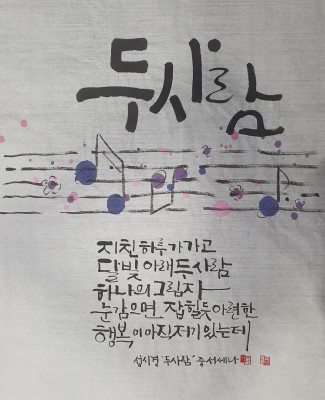 두사람
지친하루가가고
달빛아래두사람
하나의그림자
눈감으면 잡힐듯아련한
행복이아직저기있는데
성시경 '두사람' 중 서세나